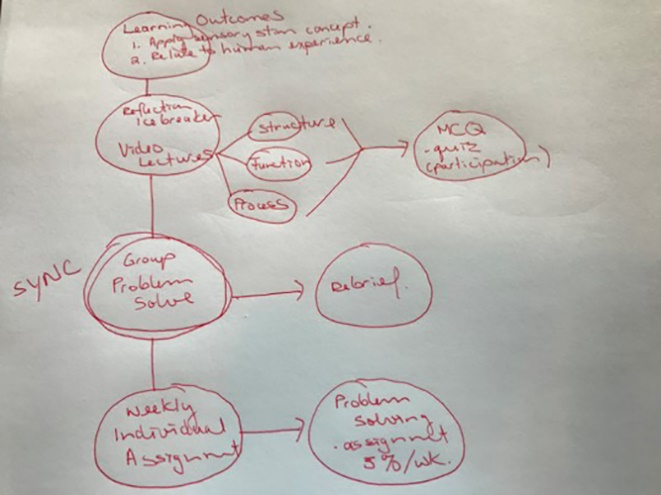 Learning Outcomes
1. Apply sensory stim concept.
2. Relate to human experience.
Reflection
icebreaker
Video
Lectures
Structure
Function
Process
MCQ
- quiz
(participation)
SYNC
Group
Problem
Solve
Debrief.
Weekly
Individual
Assignment
Problem
Solving
- assignmet
5%/wk.